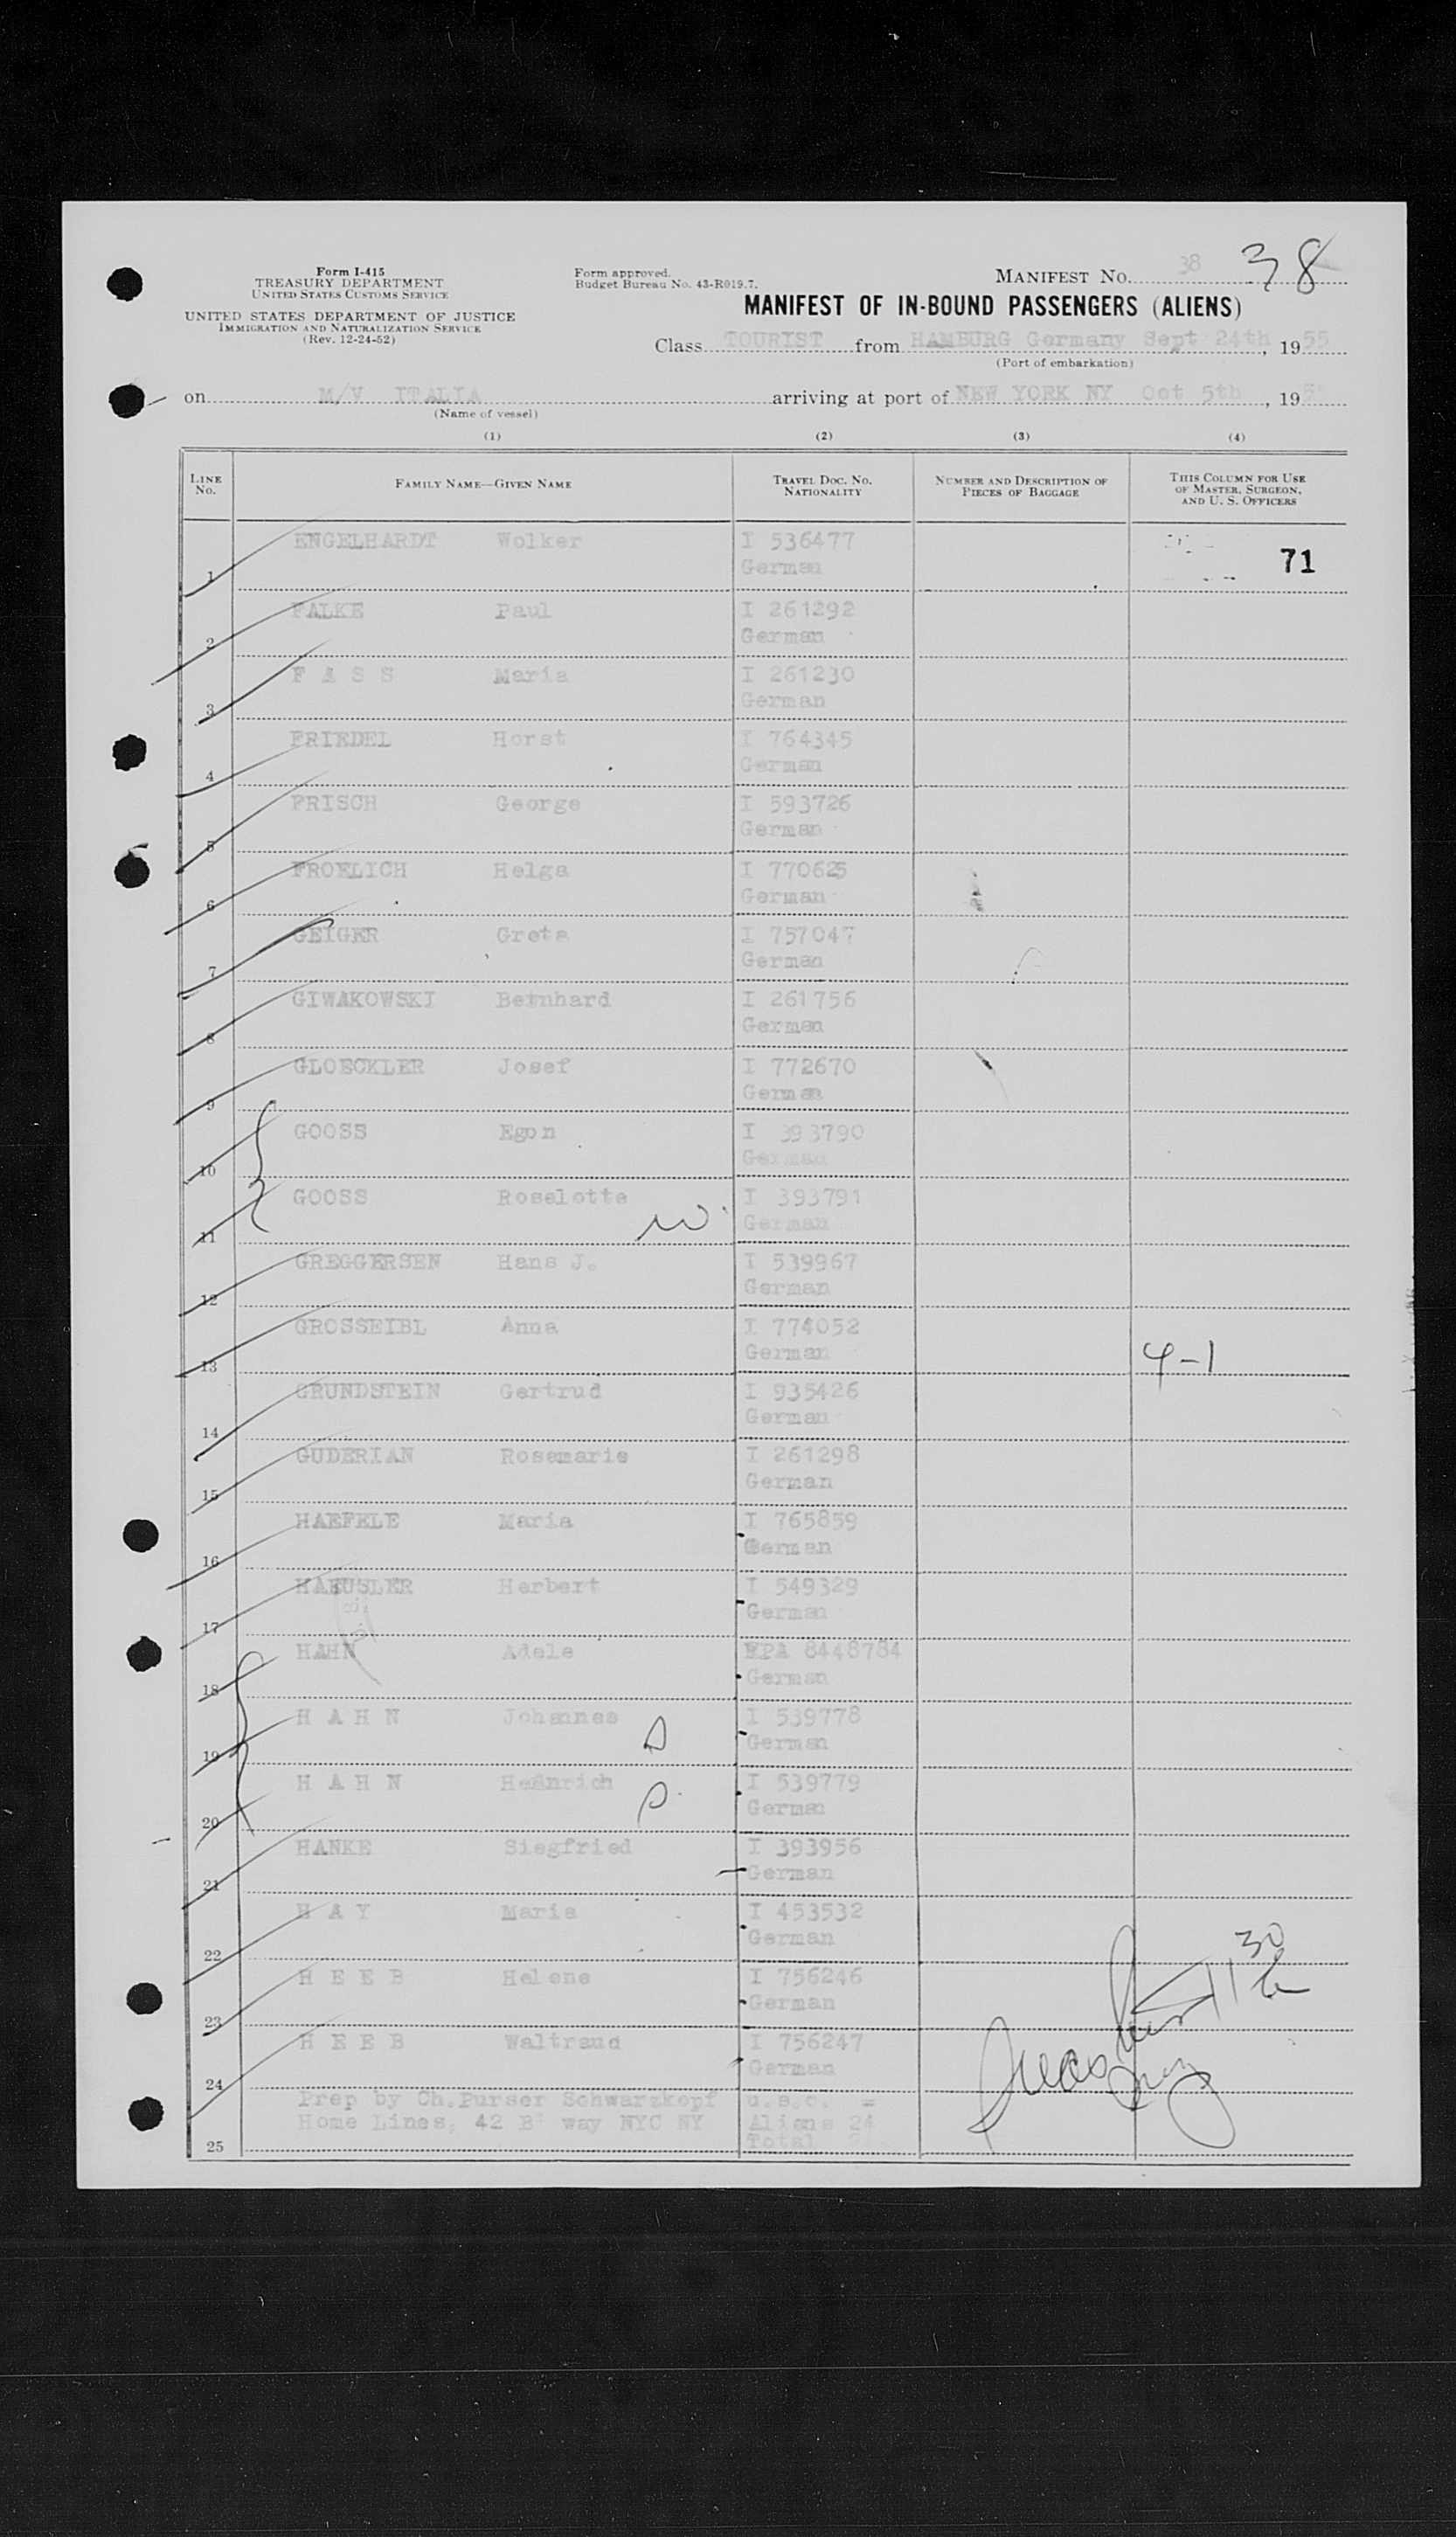 Form I-415
TREASURY DEPARTMENT
UNITED STATES CUSTOMS SERVICE
UNITED STATES DEPARTMENT OF JUSTICE
IMMIGRATION AND NATURALIZATION SERVICE
(Rev. 12-24-52)
Form approved.
Budget Bureau No. 43-R019.7.
MANIFEST NO. 38 38
MANIFEST OF IN-BOUND PASSENGERS (ALIENS)
Class TOURIST from HAMBURG Germany Sept 24th, 1955
(Port of embarkation)
on M/V ITALIA arriving at port of NEW YORK NY Oct 5th, 195
(Name of vessel)
(1) (2) (3) (4)
LINE NO. FAMILY NAME—GIVEN NAME TRAVEL DOC. NO. NATIONALITY NUMBER AND DESCRIPTION OF PIECES OF BAGGAGE THIS COLUMN FOR USE OF MASTER, SURGEON, AND U. S. OFFICERS
1 ENGELHARDT Wolker I 536477 German 71
2 FALKE Paul I 261292 German
3 F A S S Maria I 261230 German
4 FRIEDEL Horst I 764345 German
5 FRISCH George I 593726 German
6 FROELICH Helga I 770625 German
7 GEIGER Greta I 757047 German
8 GIWAKOWSKI Bernhard I 261756 German
9 GLOECKLER Josef I 772670 German
10 GOOSS Egon I 393790 German
11 GOOSS Roselotte W I 393791 German
12 GREGGERSEN Hans J. I 539967 German
13 GROSSEIBL Anna I 774052 German 4-1
14 GRUNDSTEIN Gertrud I 935426 German
15 GUDERIAN Rosemarie I 261298 German
16 HAEFELE Maria I 765859 German
17 HAEUSLER Herbert I 549329 German
18 HAHN Adele EPA 8448784 German
19 H A H N Johannes I 539778 German
20 H A H N Heinrich I 539779 German
21 HANKE Siegfried I 393956 German
22 H A Y Maria I 453532 German
23 H E E B Helene I 756246 German
24 H E E B Waltraud I 756247 German
Prep by Ch.Purser Schwarzkopf u.s.c. =
Home Lines, 42 B' way NYC NY Aliens 24
25 Total